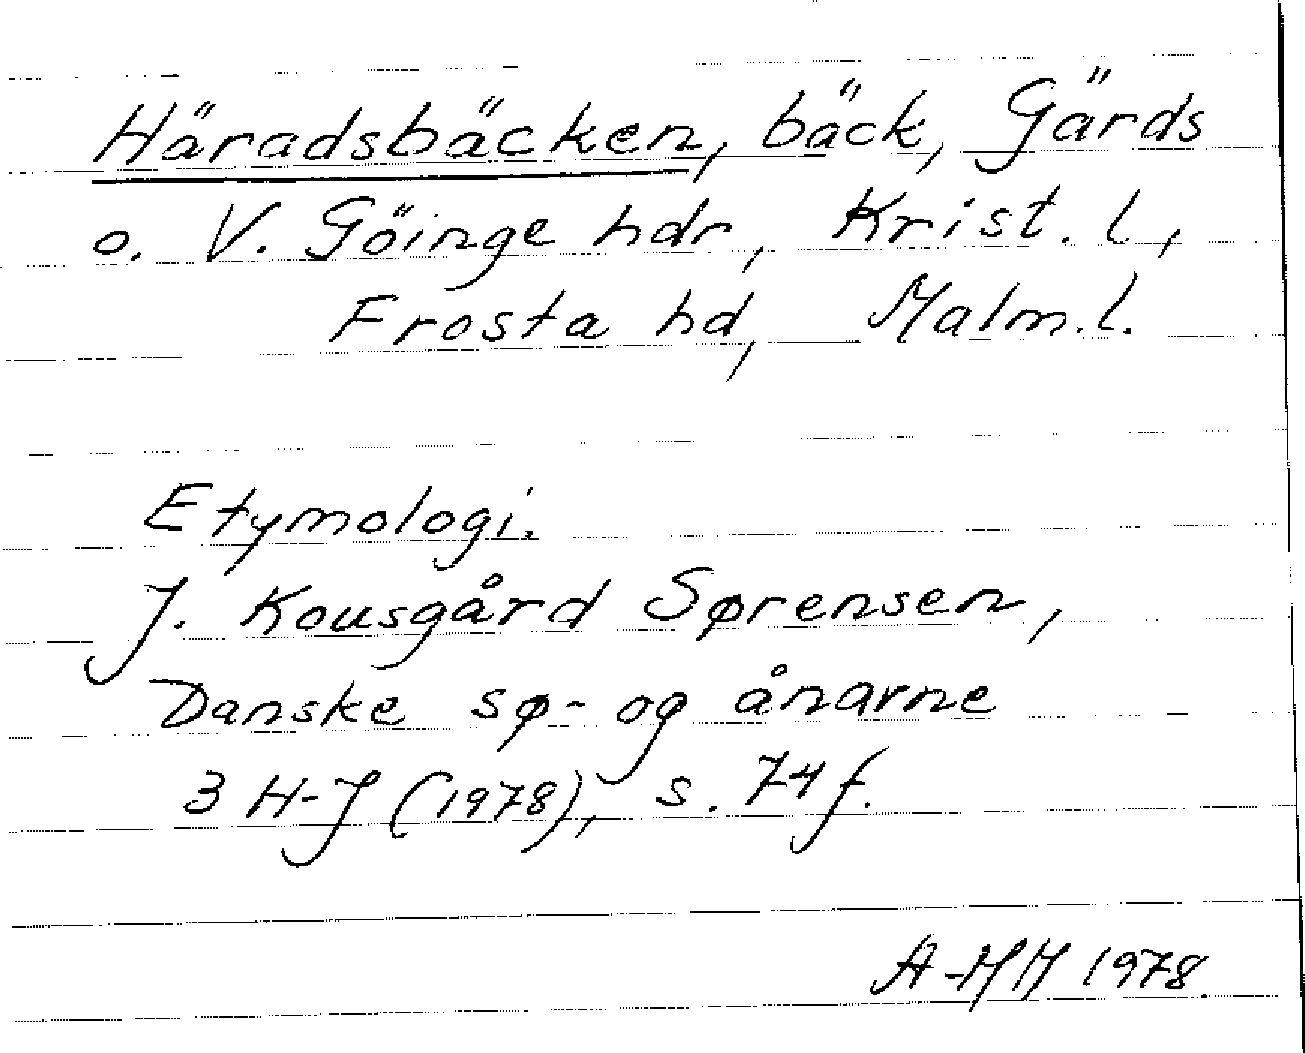 Häradsbäcken, bäck, Gärds
o. V. Göinge hdr, Krist. l,
Frosta hd, Malm. l.
Etymologi.
J. Kousgård Sørensen,
Danske sø- og ånavne
3 H-J (1978), s. 74 f.
A-MH 1978